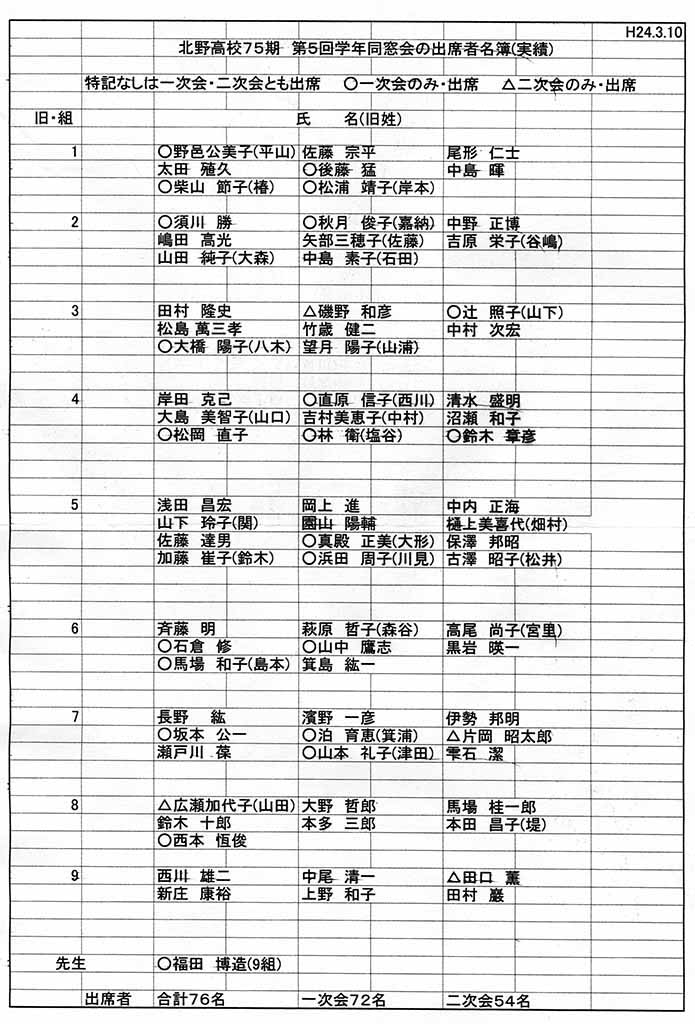 H24.3.10
北野高校75期 第5回学年同窓会の出席者名簿(実績)
特記なしは一次会・二次会とも出席 ○一次会のみ・出席 △二次会のみ・出席
旧・組 氏 名(旧姓)
1 ○野邑公美子(平山) 佐藤 宗平 尾形 仁士
太田 殖久 ○後藤 猛 中島 暉
○柴山 節子(椿) ○松浦 靖子(岸本)
2 ○須川 勝 ○秋月 俊子(嘉納) 中野 正博
嶋田 高光 矢部三穂子(佐藤) 吉原 栄子(谷嶋)
山田 純子(大森) 中島 素子(石田)
3 田村 隆史 △磯野 和彦 ○辻 照子(山下)
松島 萬三孝 竹歳 健二 中村 次宏
○大橋 陽子(八木) 望月 陽子(山浦)
4 岸田 克己 ○直原 信子(西川) 清水 盛明
大島 美智子(山口) 吉村美恵子(中村) 沼瀬 和子
○松岡 直子 ○林 衛(塩谷) ○鈴木 章彦
5 浅田 昌宏 岡上 進 中内 正海
山下 玲子(関) 園山 陽輔 樋上美喜代(畑村)
佐藤 達男 ○真殿 正美(大形) 保澤 邦昭
加藤 崔子(鈴木) ○浜田 周子(川見) 古澤 昭子(松井)
6 斉藤 明 萩原 哲子(森谷) 高尾 尚子(宮里)
○石倉 修 ○山中 鷹志 黒岩 暎一
○馬場 和子(島本) 箕島 紘一
7 長野 紘 濱野 一彦 伊勢 邦明
○坂本 公一 ○泊 育恵(箕浦) △片岡 昭太郎
瀬戸川 葆 ○山本 礼子(津田) 雫石 潔
8 △広瀬加代子(山田) 大野 哲郎 馬場 桂一郎
鈴木 十郎 本多 三郎 本田 昌子(堤)
○西本 恒俊
9 西川 雄二 中尾 清一 △田口 薫
新庄 康裕 上野 和子 田村 巌
先生 ○福田 博造(9組)
出席者 合計76名 一次会72名 二次会54名